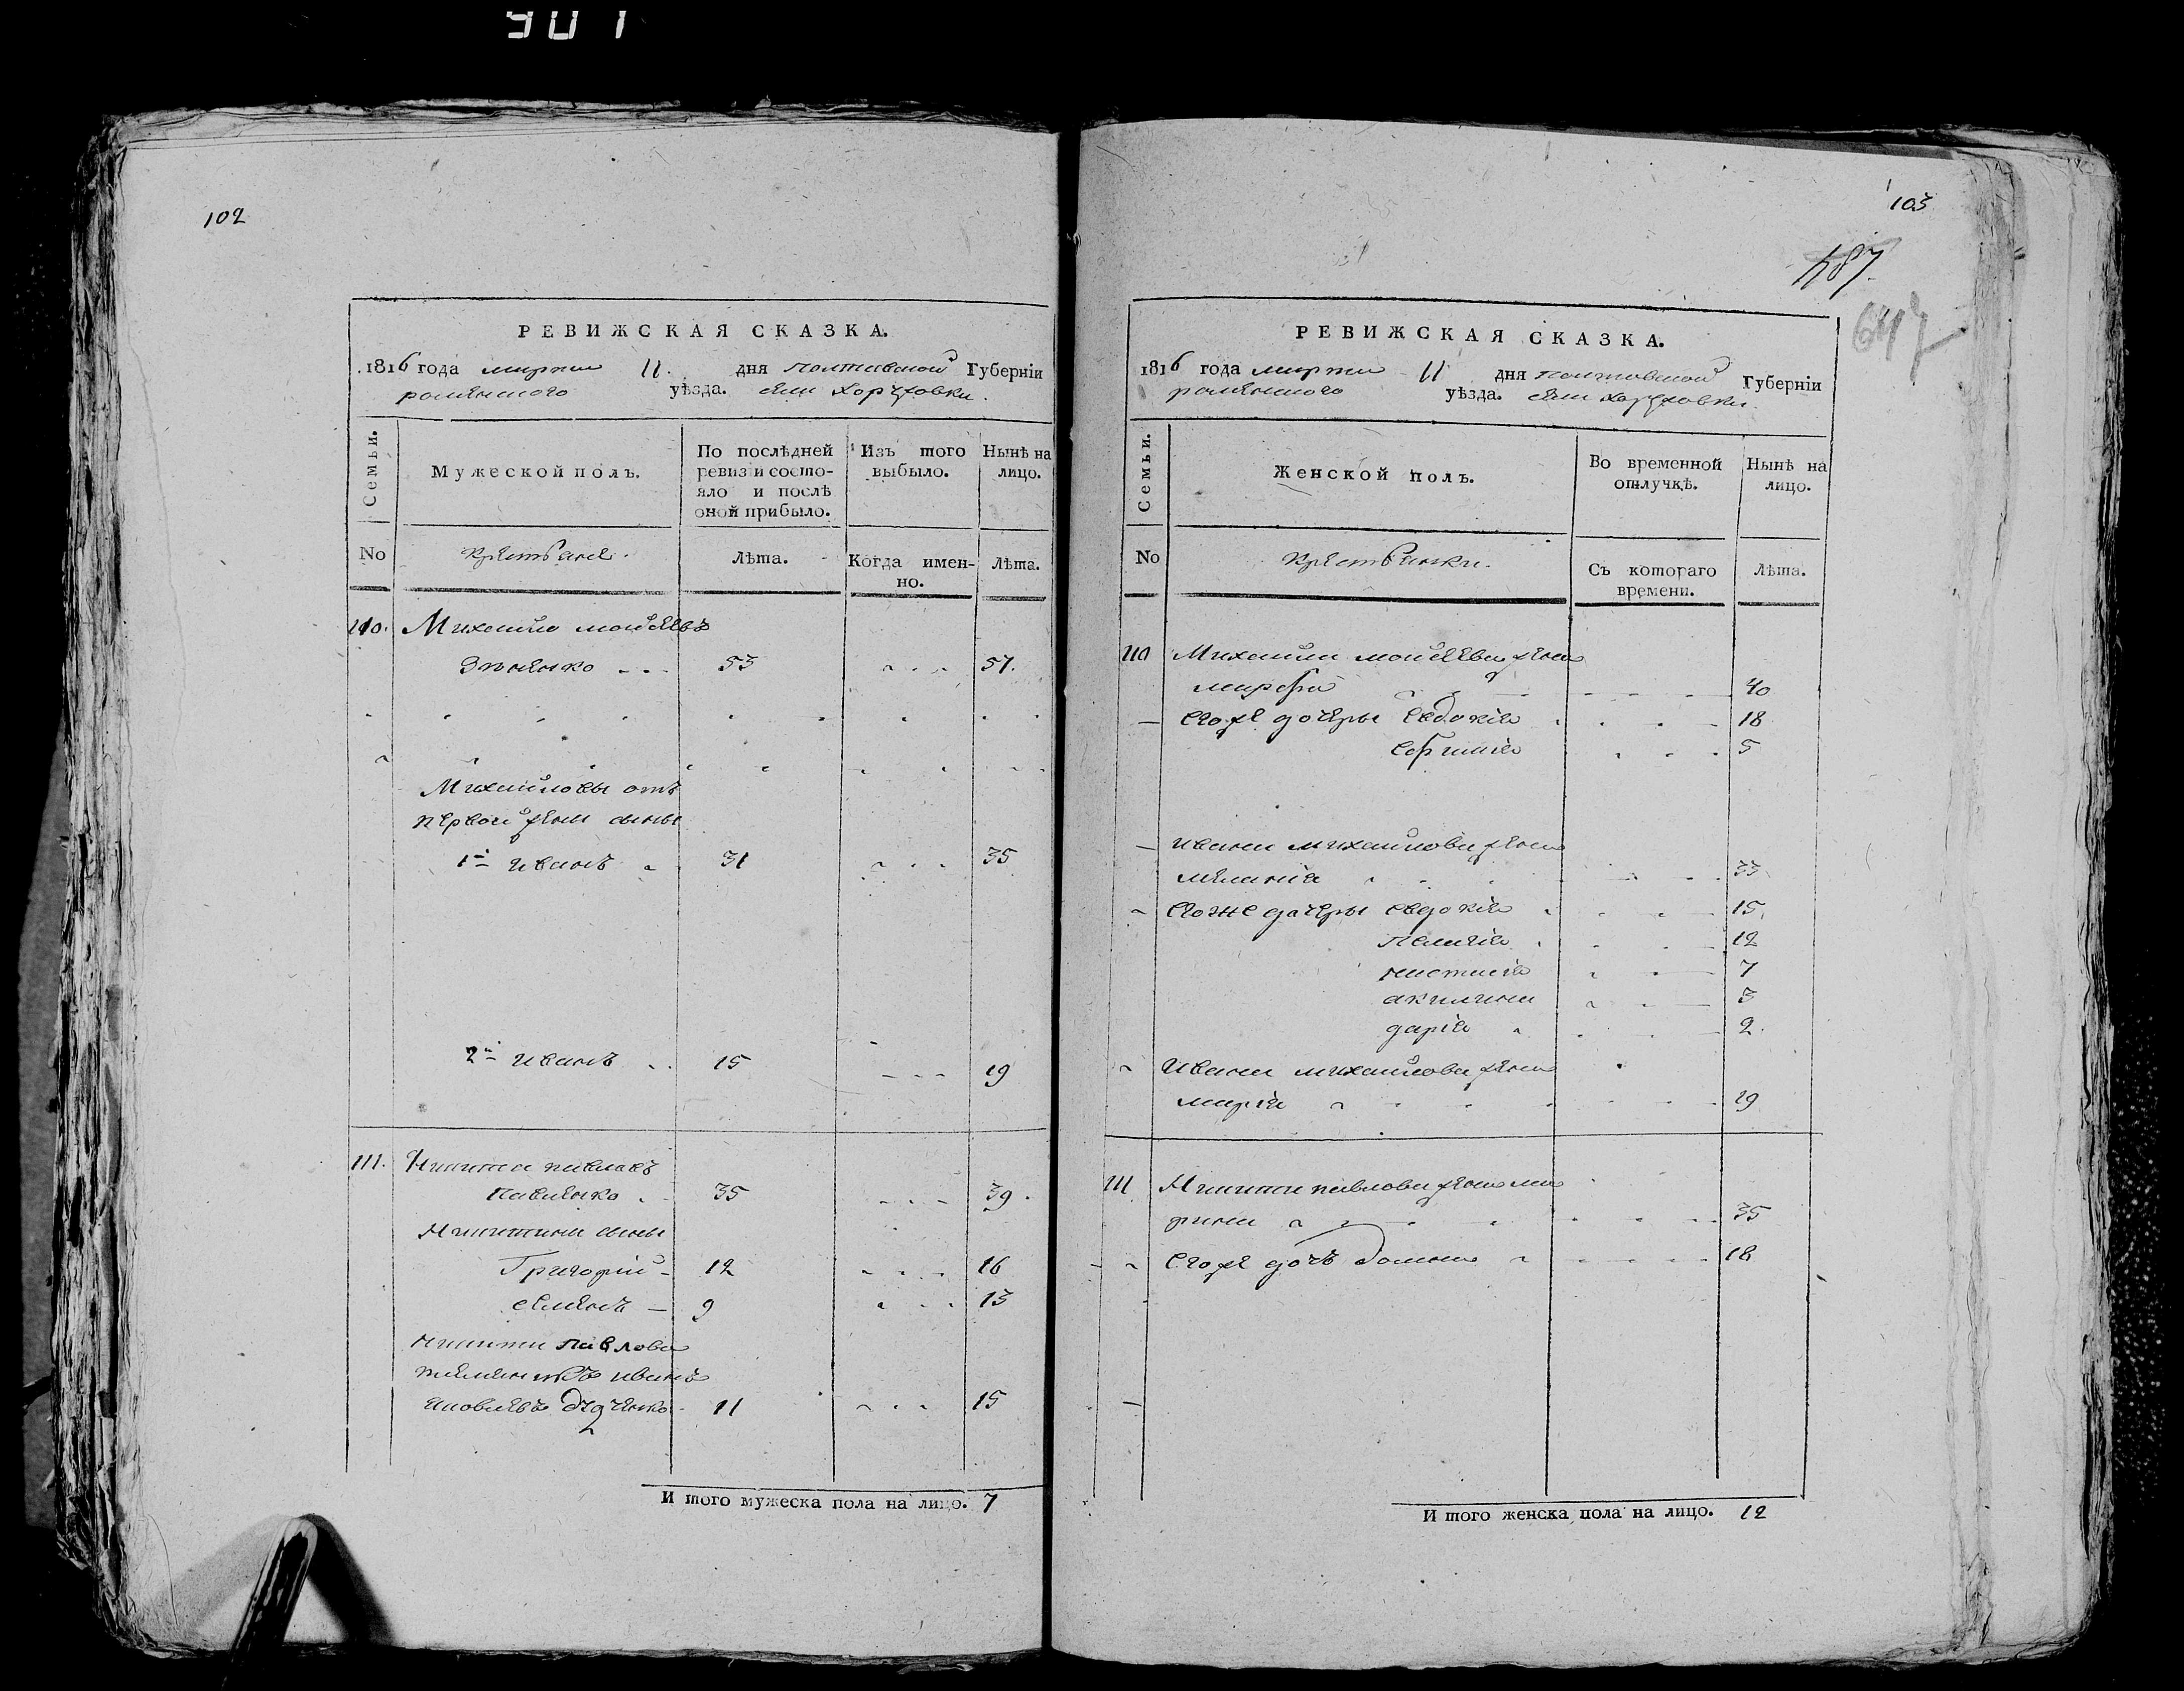 901
102
РЕВИЖСКАЯ СКАЗКА.
1816 года марта 11. дня полтавской Губернїи
роменского уѣзда. села Хоружовки.
Семьи.
Мужеской полъ.
По послѣдней ревизїи состояло и послѣ оной прибыло.
Изъ того выбыло.
Нынѣ на лицо.
No
Крестьяне.
Лѣта.
Когда именно.
Лѣта.
110. Михайло моисеевъ
53 57.
Михайловы отъ
первой жены сыны
1й Иванъ 31 35
2й Иванъ 15 19
111. Никита павловъ
Павленко 35 39.
Никитины сыны
Григорий 12 16
семенъ 9 13
Никиты Павлова
племенникъ иванъ
яковлевъ 11 15
И того мужеска пола на лицо. 7
103
487.
647
РЕВИЖСКАЯ СКАЗКА.
1816 года марта 11 дня полтовской Губернїи
роменского уѣзда. села Хоружовки.
Семьи.
Женской полъ.
Во временной отлучкѣ.
Нынѣ на лицо.
No
Крестьянки.
Съ котораго времени.
Лѣта.
110 Михайла моисеева жена
марфа 40
его же дочеры Евдокїя 18
Евфимїя 5
ивана михайлова жена
меланїя 33
Егоже дочеры евдокїя 15
пелагїя 12
настасїя 7
акилина 3
дарїя 2
Ивана михайлова жена
марїя 19
111 Никиты павлова жена ма
рина 35
Его же дочъ домна 18
И того женска пола на лицо. 12